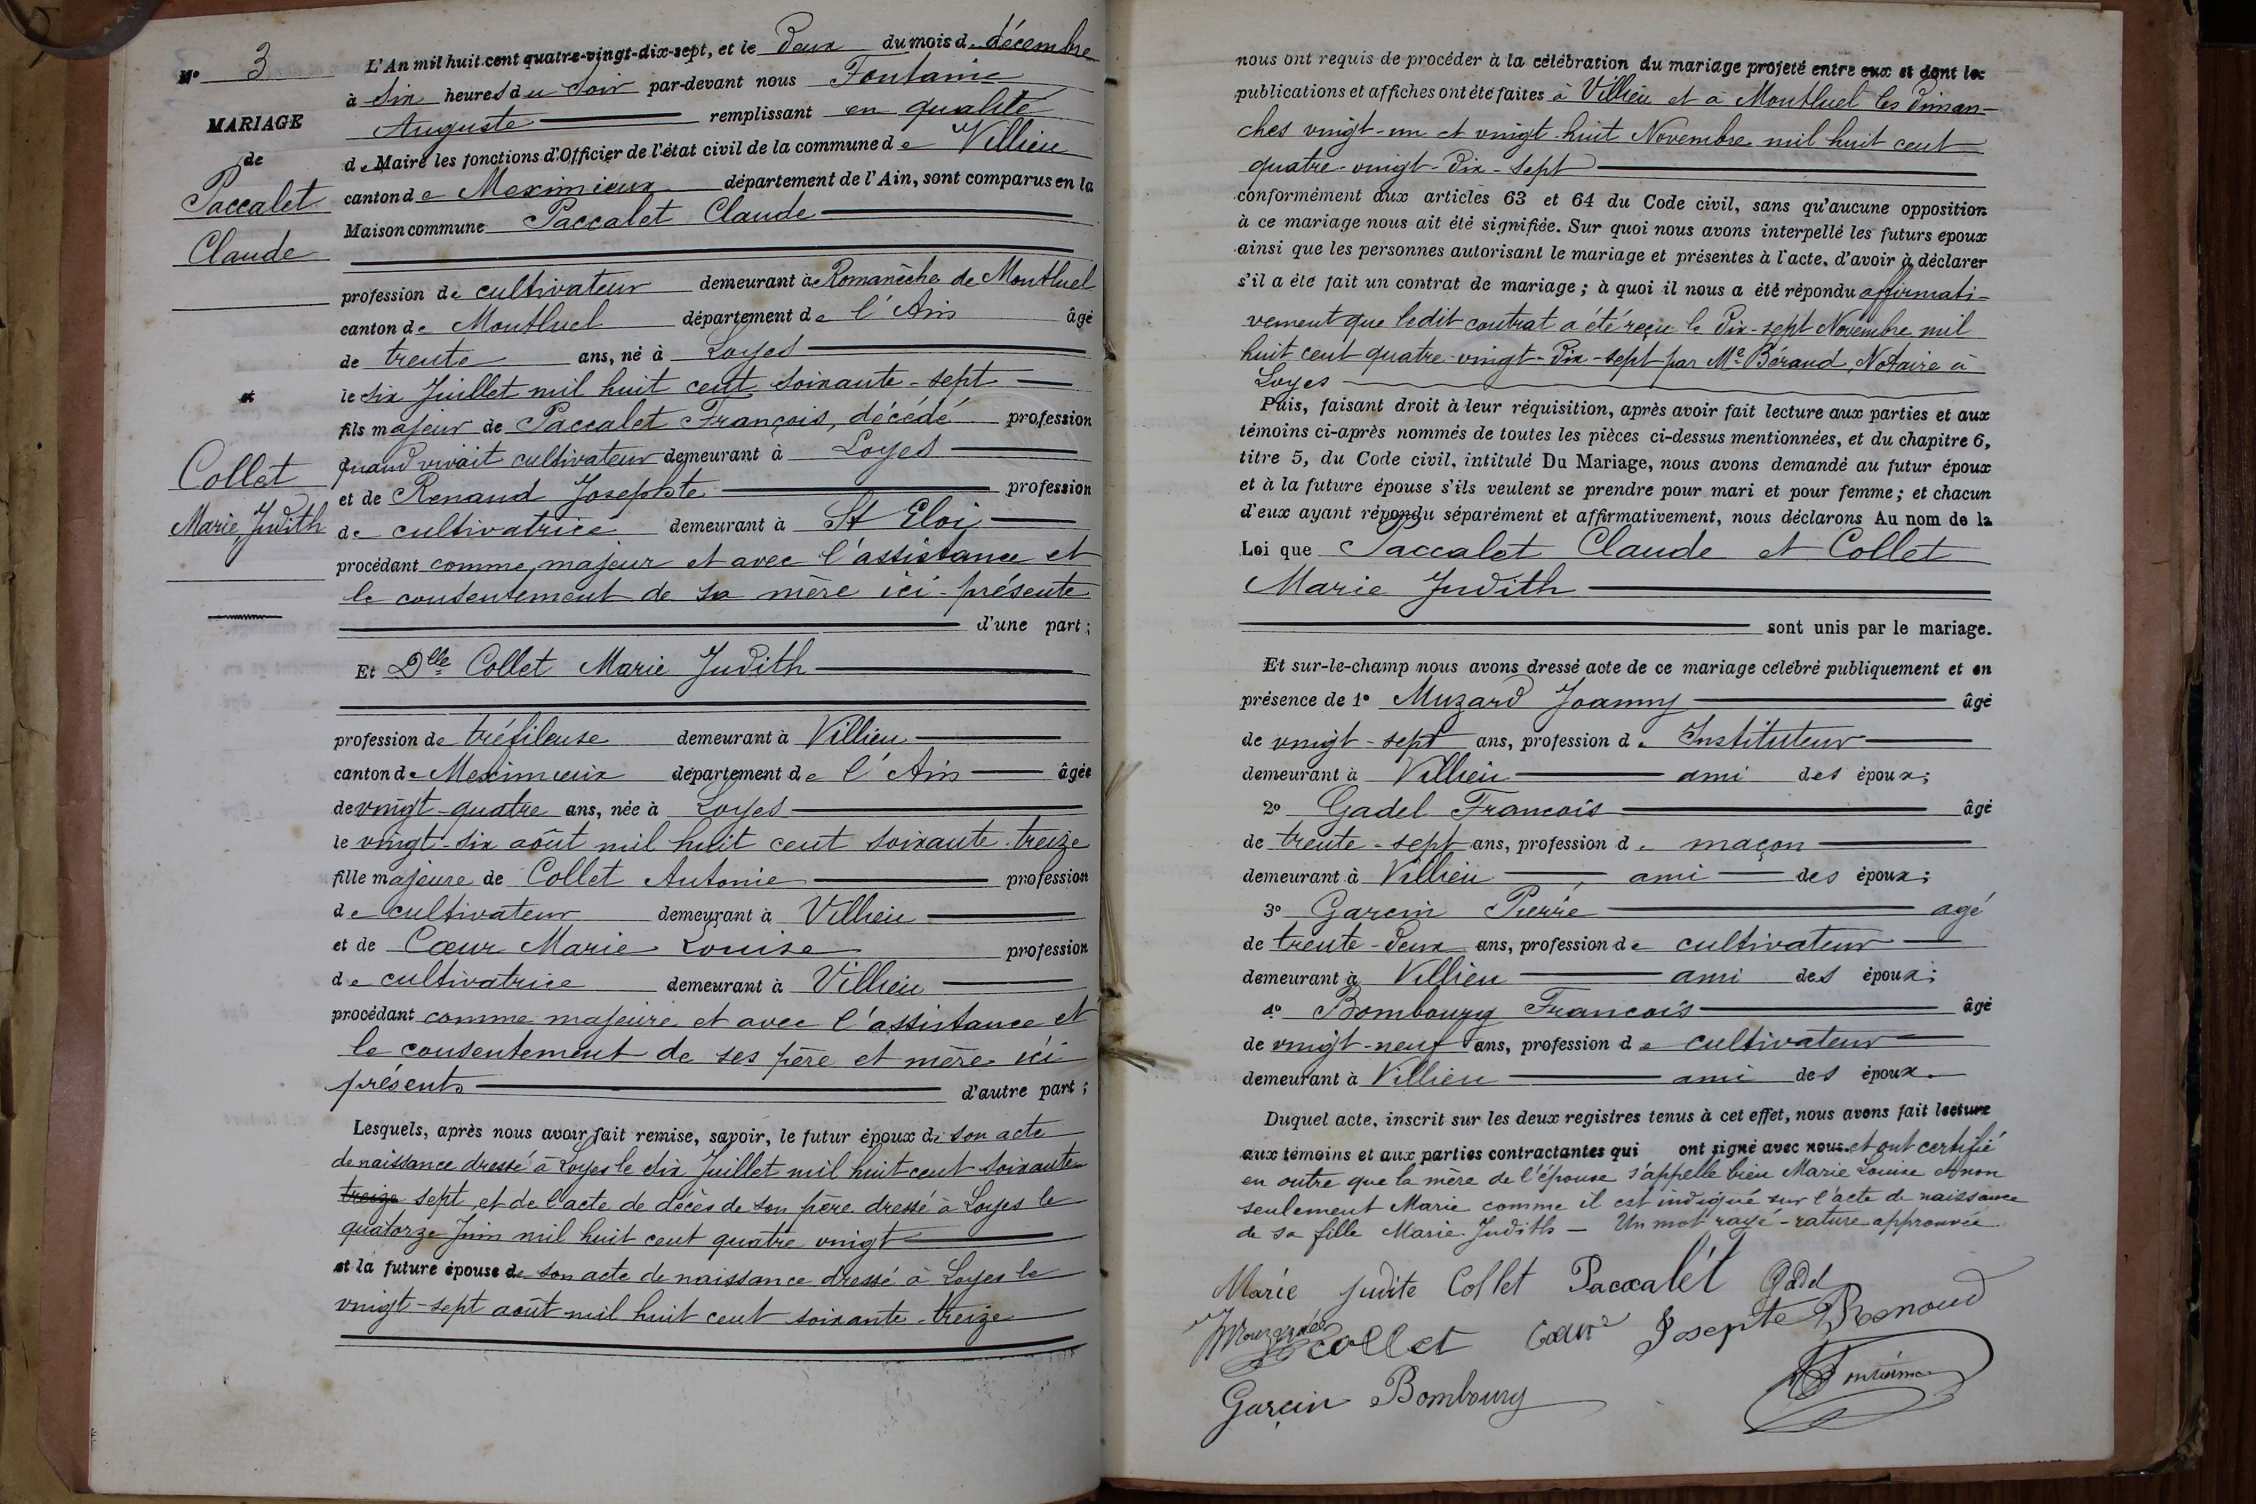 N° 3
MARIAGE
de
Paccalet
Claude
et
Collet
Marie Judith
L'An mil huit cent quatre-vingt-dix-sept, et le Deux du mois de décembre
à Six heures du Soir par-devant nous Fontanie
Auguste remplissant en qualité
de Maire les fonctions d'Officier de l'état civil de la commune de Villieu
canton de Meximieux département de l'Ain, sont comparus en la
Maison commune Paccalet Claude
profession de cultivateur demeurant à Romanèche de Montluel
canton de Montluel département de l'Ain âgé
de trente ans, né à Loyes
le six Juillet mil huit cent soixante-sept
fils majeur de Paccalet François, décédé profession
quand vivait cultivateur demeurant à Loyes
et de Renaud Josephte profession
de cultivatrice demeurant à St Eloi
procédant comme majeur et avec l'assistance et
le consentement de sa mère ici-présente
d'une part;
Et Dlle Collet Marie Judith
profession de tréfileuse demeurant à Villieu
canton de Meximieux département de l'Ain âgée
de vingt-quatre ans, née à Loyes
le vingt-six août mil huit cent soixante-treize
fille majeure de Collet Antonie profession
de cultivateur demeurant à Villieu
et de Cœur Marie Louise profession
de cultivatrice demeurant à Villieu
procédant comme majeure et avec l'assistance et
le consentement de ses père et mère ici
présents d'autre part;
Lesquels, après nous avoir fait remise, savoir, le futur époux de son acte
de naissance dressé à Loyes le six Juillet mil huit cent soixante
treize sept, et de l'acte de décès de son père dressé à Loyes le
quatorze Juin mil huit cent quatre vingt
et la future épouse de son acte de naissance dressé à Loyes le
vingt-sept août mil huit cent soixante-treize
nous ont requis de procéder à la célébration du mariage projeté entre eux et dont les
publications et affiches ont été faites à Villieu et à Montluel les Diman-
ches vingt-un et vingt-huit Novembre mil huit cent
quatre-vingt-Dix-sept
conformément aux articles 63 et 64 du Code civil, sans qu'aucune opposition
à ce mariage nous ait été signifiée. Sur quoi nous avons interpellé les futurs époux
ainsi que les personnes autorisant le mariage et présentes à l'acte, d'avoir à déclarer
s'il a été fait un contrat de mariage; à quoi il nous a été répondu affirmati-
vement que ledit contrat a été reçu le Dix-sept Novembre mil
huit cent quatre-vingt-Dix-sept par Me Béraud, Notaire à
Loyes
Puis, faisant droit à leur réquisition, après avoir fait lecture aux parties et aux
témoins ci-après nommés de toutes les pièces ci-dessus mentionnées, et du chapitre 6,
titre 5, du Code civil, intitulé Du Mariage, nous avons demandé au futur époux
et à la future épouse s'ils veulent se prendre pour mari et pour femme; et chacun
d'eux ayant répondu séparément et affirmativement, nous déclarons Au nom de la
Loi que Paccalet Claude et Collet
Marie Judith
sont unis par le mariage.
Et sur-le-champ nous avons dressé acte de ce mariage célébré publiquement et en
présence de 1° Muzard Joanny âgé
de vingt-sept ans, profession d' Instituteur
demeurant à Villieu ami des époux;
2° Gadel Francois âgé
de trente-sept ans, profession de maçon
demeurant à Villieu ami des époux;
3° Garcin Pierre agé
de trente-Deux ans, profession de cultivateur
demeurant à Villieu ami des époux;
4° Bombourg Francois âgé
de vingt-neuf ans, profession de cultivateur
demeurant à Villieu ami des époux.
Duquel acte, inscrit sur les deux registres tenus à cet effet, nous avons fait lecture
aux témoins et aux parties contractantes qui ont signé avec nous et ont certifié
en outre que la mère de l'épouse s'appelle bien Marie Louise et non
seulement Marie comme il est indiqué sur l'acte de naissance
de sa fille Marie Judith - Un mot rayé - rature approuvée
Marie judite Collet Paccalét Gadel
Collet Cœur Josepte Renoud
Garcin Bombourg